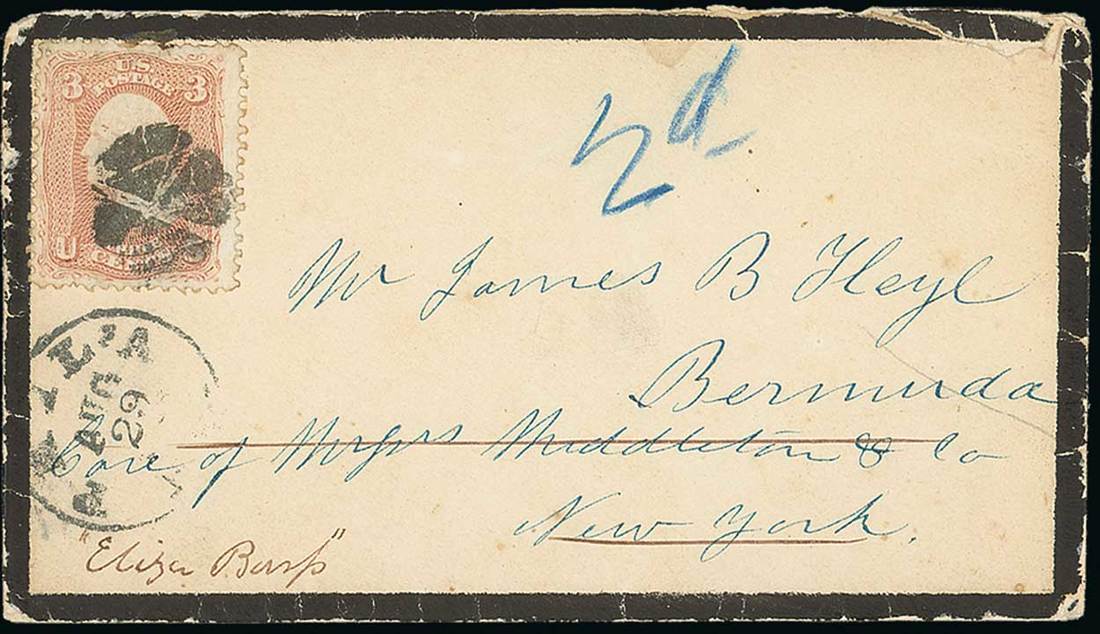 3 U.S. 3
POSTAGE
U
2d
Mr James B Heyl
Bermuda
Care of Messrs Middleton & Co
New York.
"Eliza Barss"
PHIL'A
AUG
29